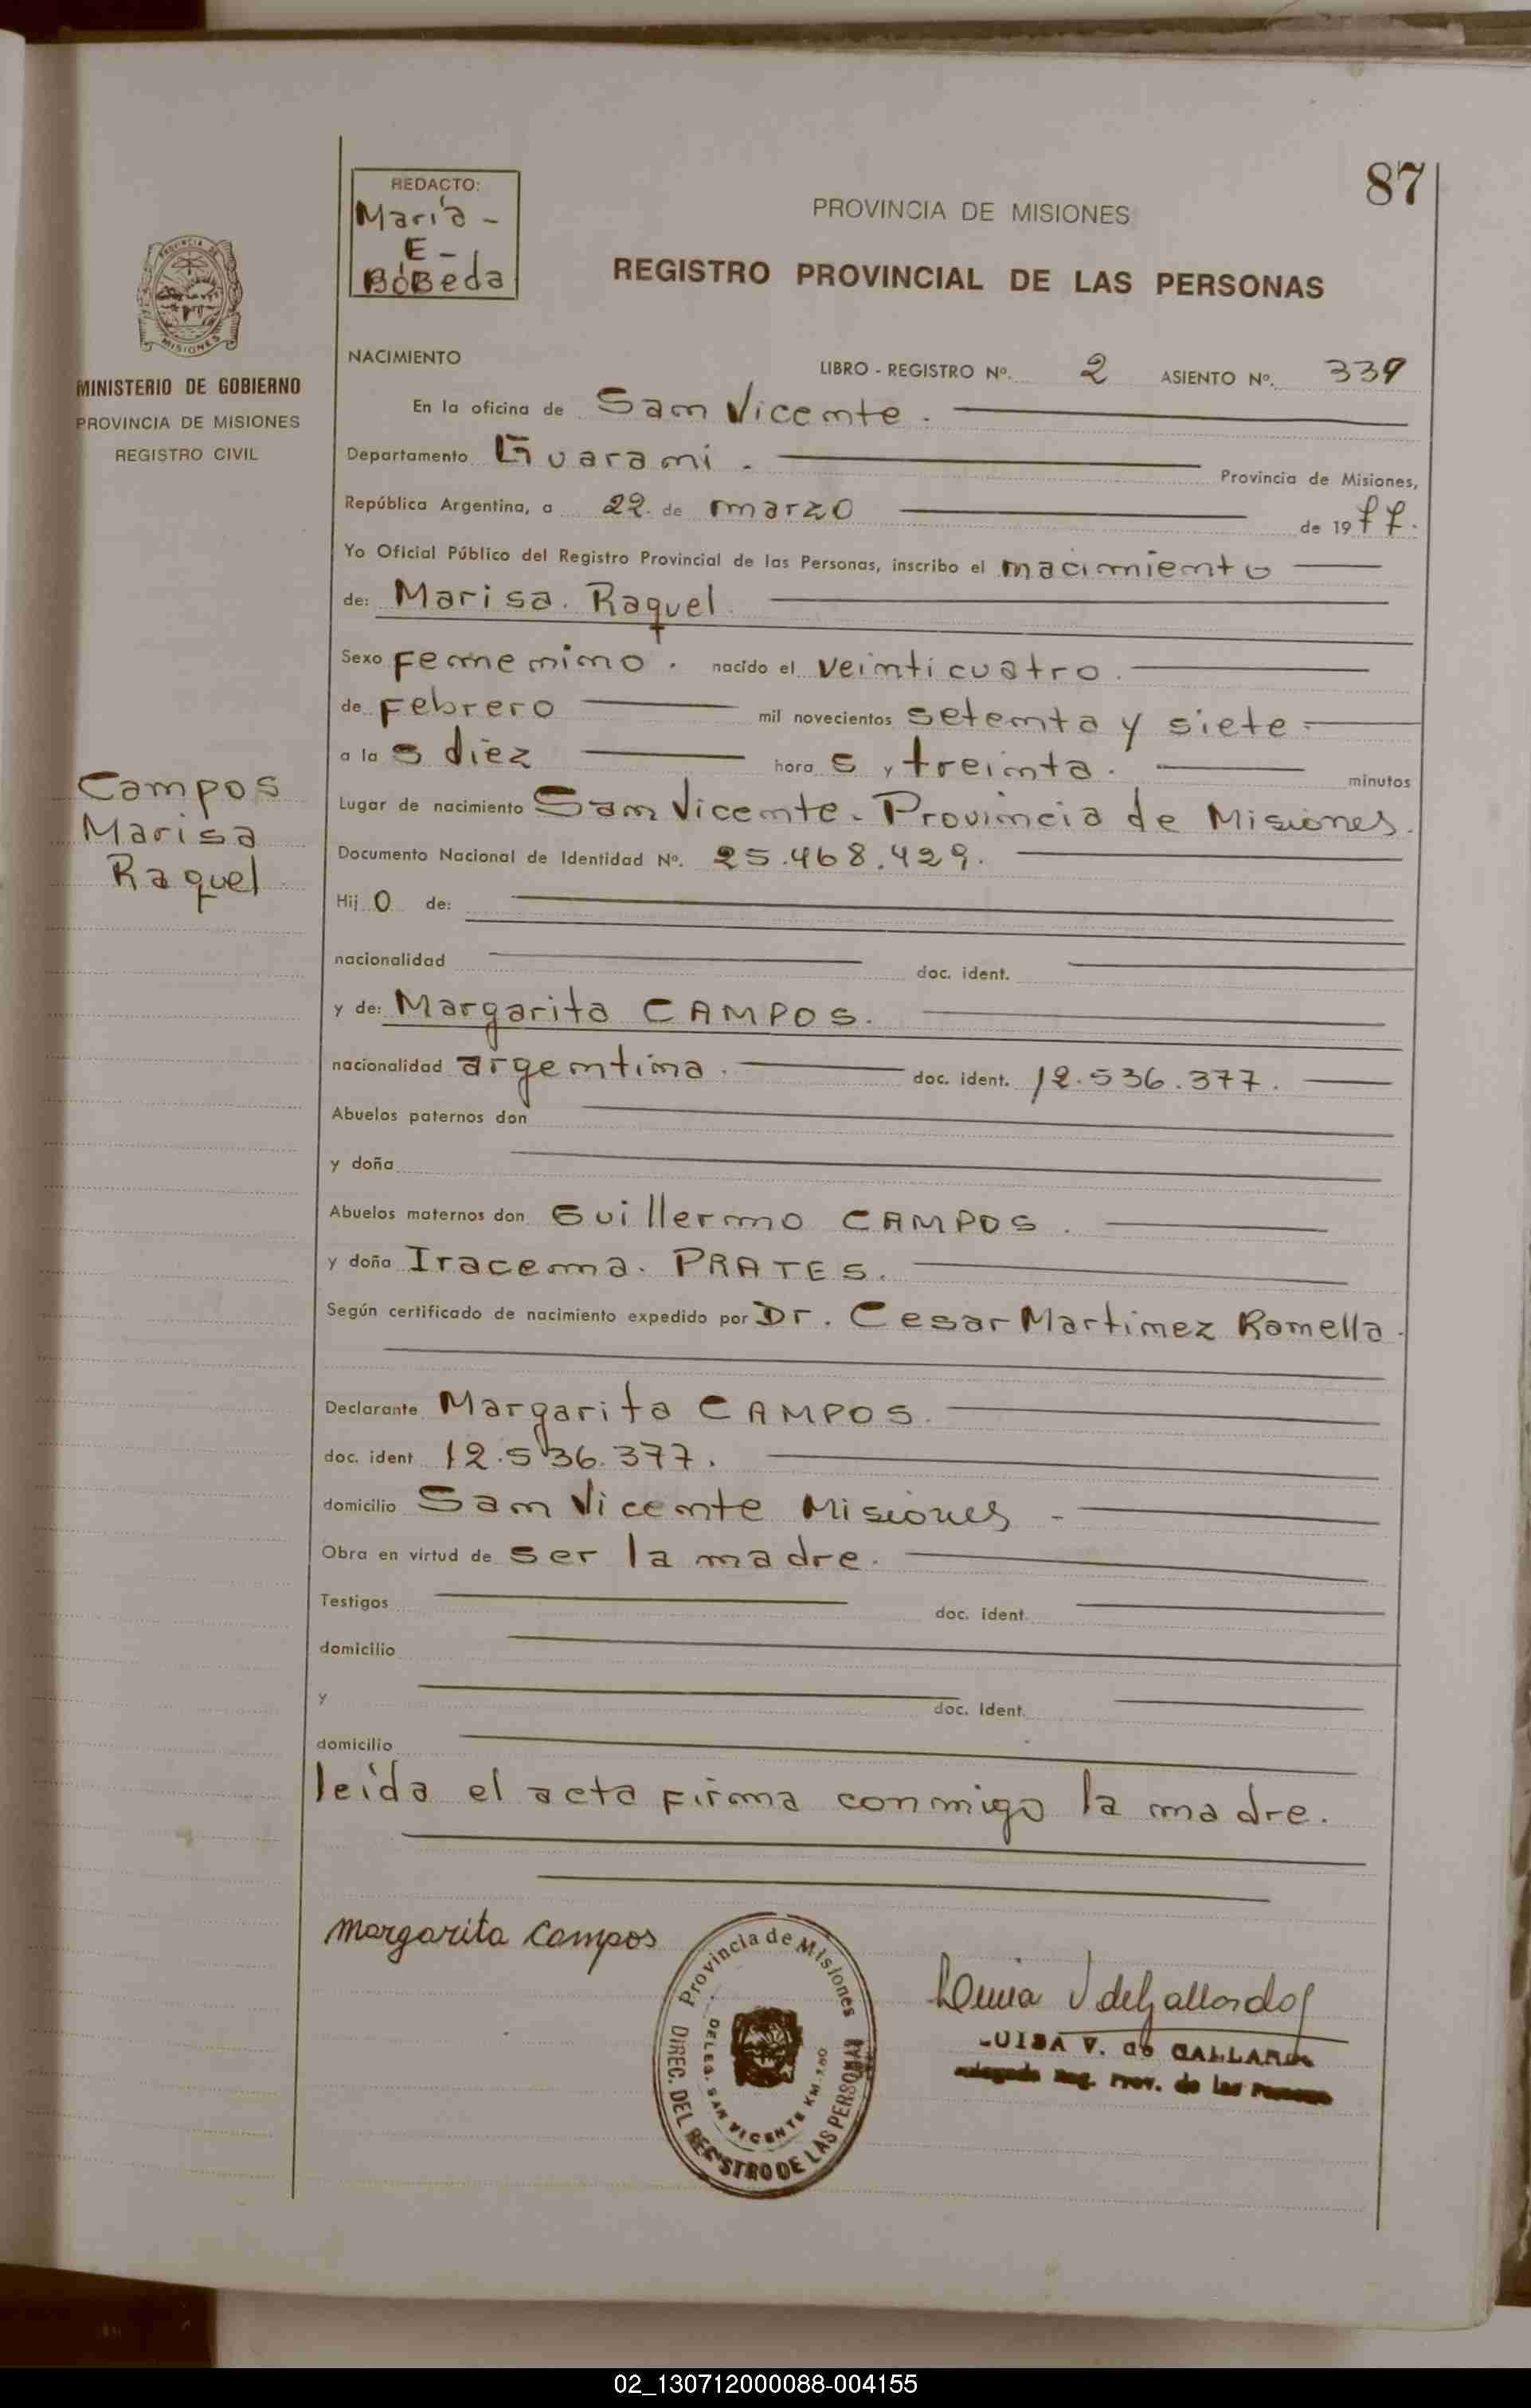 87
REDACTO:
Maria -
E -
BóBeda
PROVINCIA DE MISIONES
REGISTRO PROVINCIAL DE LAS PERSONAS
MISIONES
MINISTERIO DE GOBIERNO
PROVINCIA DE MISIONES
REGISTRO CIVIL
NACIMIENTO LIBRO - REGISTRO Nº. 2 ASIENTO Nº. 339
En la oficina de San Vicente.
Departamento Guarani. Provincia de Misiones,
República Argentina, a 22. de marzo de 1977.
Yo Oficial Público del Registro Provincial de las Personas, inscribo el nacimiento
de: Marisa. Raquel.
Sexo Femenino. nacido el veinticuatro.
de Febrero mil novecientos setenta y siete.
a la s diez hora s y treinta. minutos
Campos
Marisa
Raquel
Lugar de nacimiento San Vicente. Provincia de Misiones.
Documento Nacional de Identidad Nº. 25.468.429.
Hij o de:
nacionalidad doc. ident.
y de: Margarita CAMPOS.
nacionalidad argentina. doc. ident. 12.536.377.
Abuelos paternos don
y doña
Abuelos maternos don Guillermo CAMPOS.
y doña Iracema. PRATES.
Según certificado de nacimiento expedido por Dr. Cesar Martinez Romella.
Declarante Margarita CAMPOS.
doc. ident 12.536.377.
domicilio San Vicente Misiones -
Obra en virtud de ser la madre.
Testigos doc. ident.
domicilio
y doc. Ident.
domicilio
leída el acta firma conmigo la madre.
Margarita Campos
Provincia de Misiones
DELEG. SAN VICENTE KM.
DIREC. DEL REGISTRO DE LAS PERSONAS
LUISA V. de GALLARDO
Reg. Prov. de las Personas
02_130712000088-004155